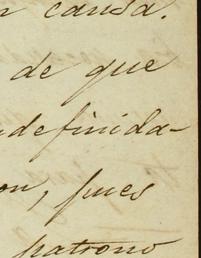 n causa.
de que
ndefinida-
on, pues
patrono